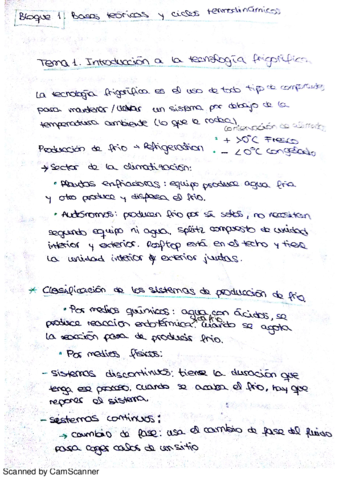 Bloque 1: Bases teóricas y ciclos termodinámicos
Tema 1. Introducción a la tecnología frigorífica.
La tecnología frigorífica es el uso de todo tipo de
para mantener/ un sistema por debajo de la
temperatura ambiente (lo que le rodea).
conservación de alimentos
Producción de frío → Refrigeration • + >0ºC Fresco
• - <0ºC congelado
→ Sector de la climatización:
• Plantas enfriadoras: equipo produce agua fría
y otro produce y dispersa el frío.
• Autónomos: producen frío por sí solos, no necesitan
segundo equipo ni agua, splitz compuesto de unidad
interior y exterior. Rooftop está en el techo y tiene
la unidad interior y exterior juntas.
* Clasificación de los sistemas de producción de frío
• Por medios químicos: agua con ácidos, se
produce reacción endotérmica. Cuando se agota
la reacción para de producir frío.
• Por medios físicos:
- sistemas discontinuos: tiene la duración que
tenga ese proceso, cuando se acaba el frío, hay que
reponer el sistema.
- sistemas continuos:
→ cambio de fase: usa el cambio de fase del fluido
para coger calor de un sitio
Scanned by CamScanner